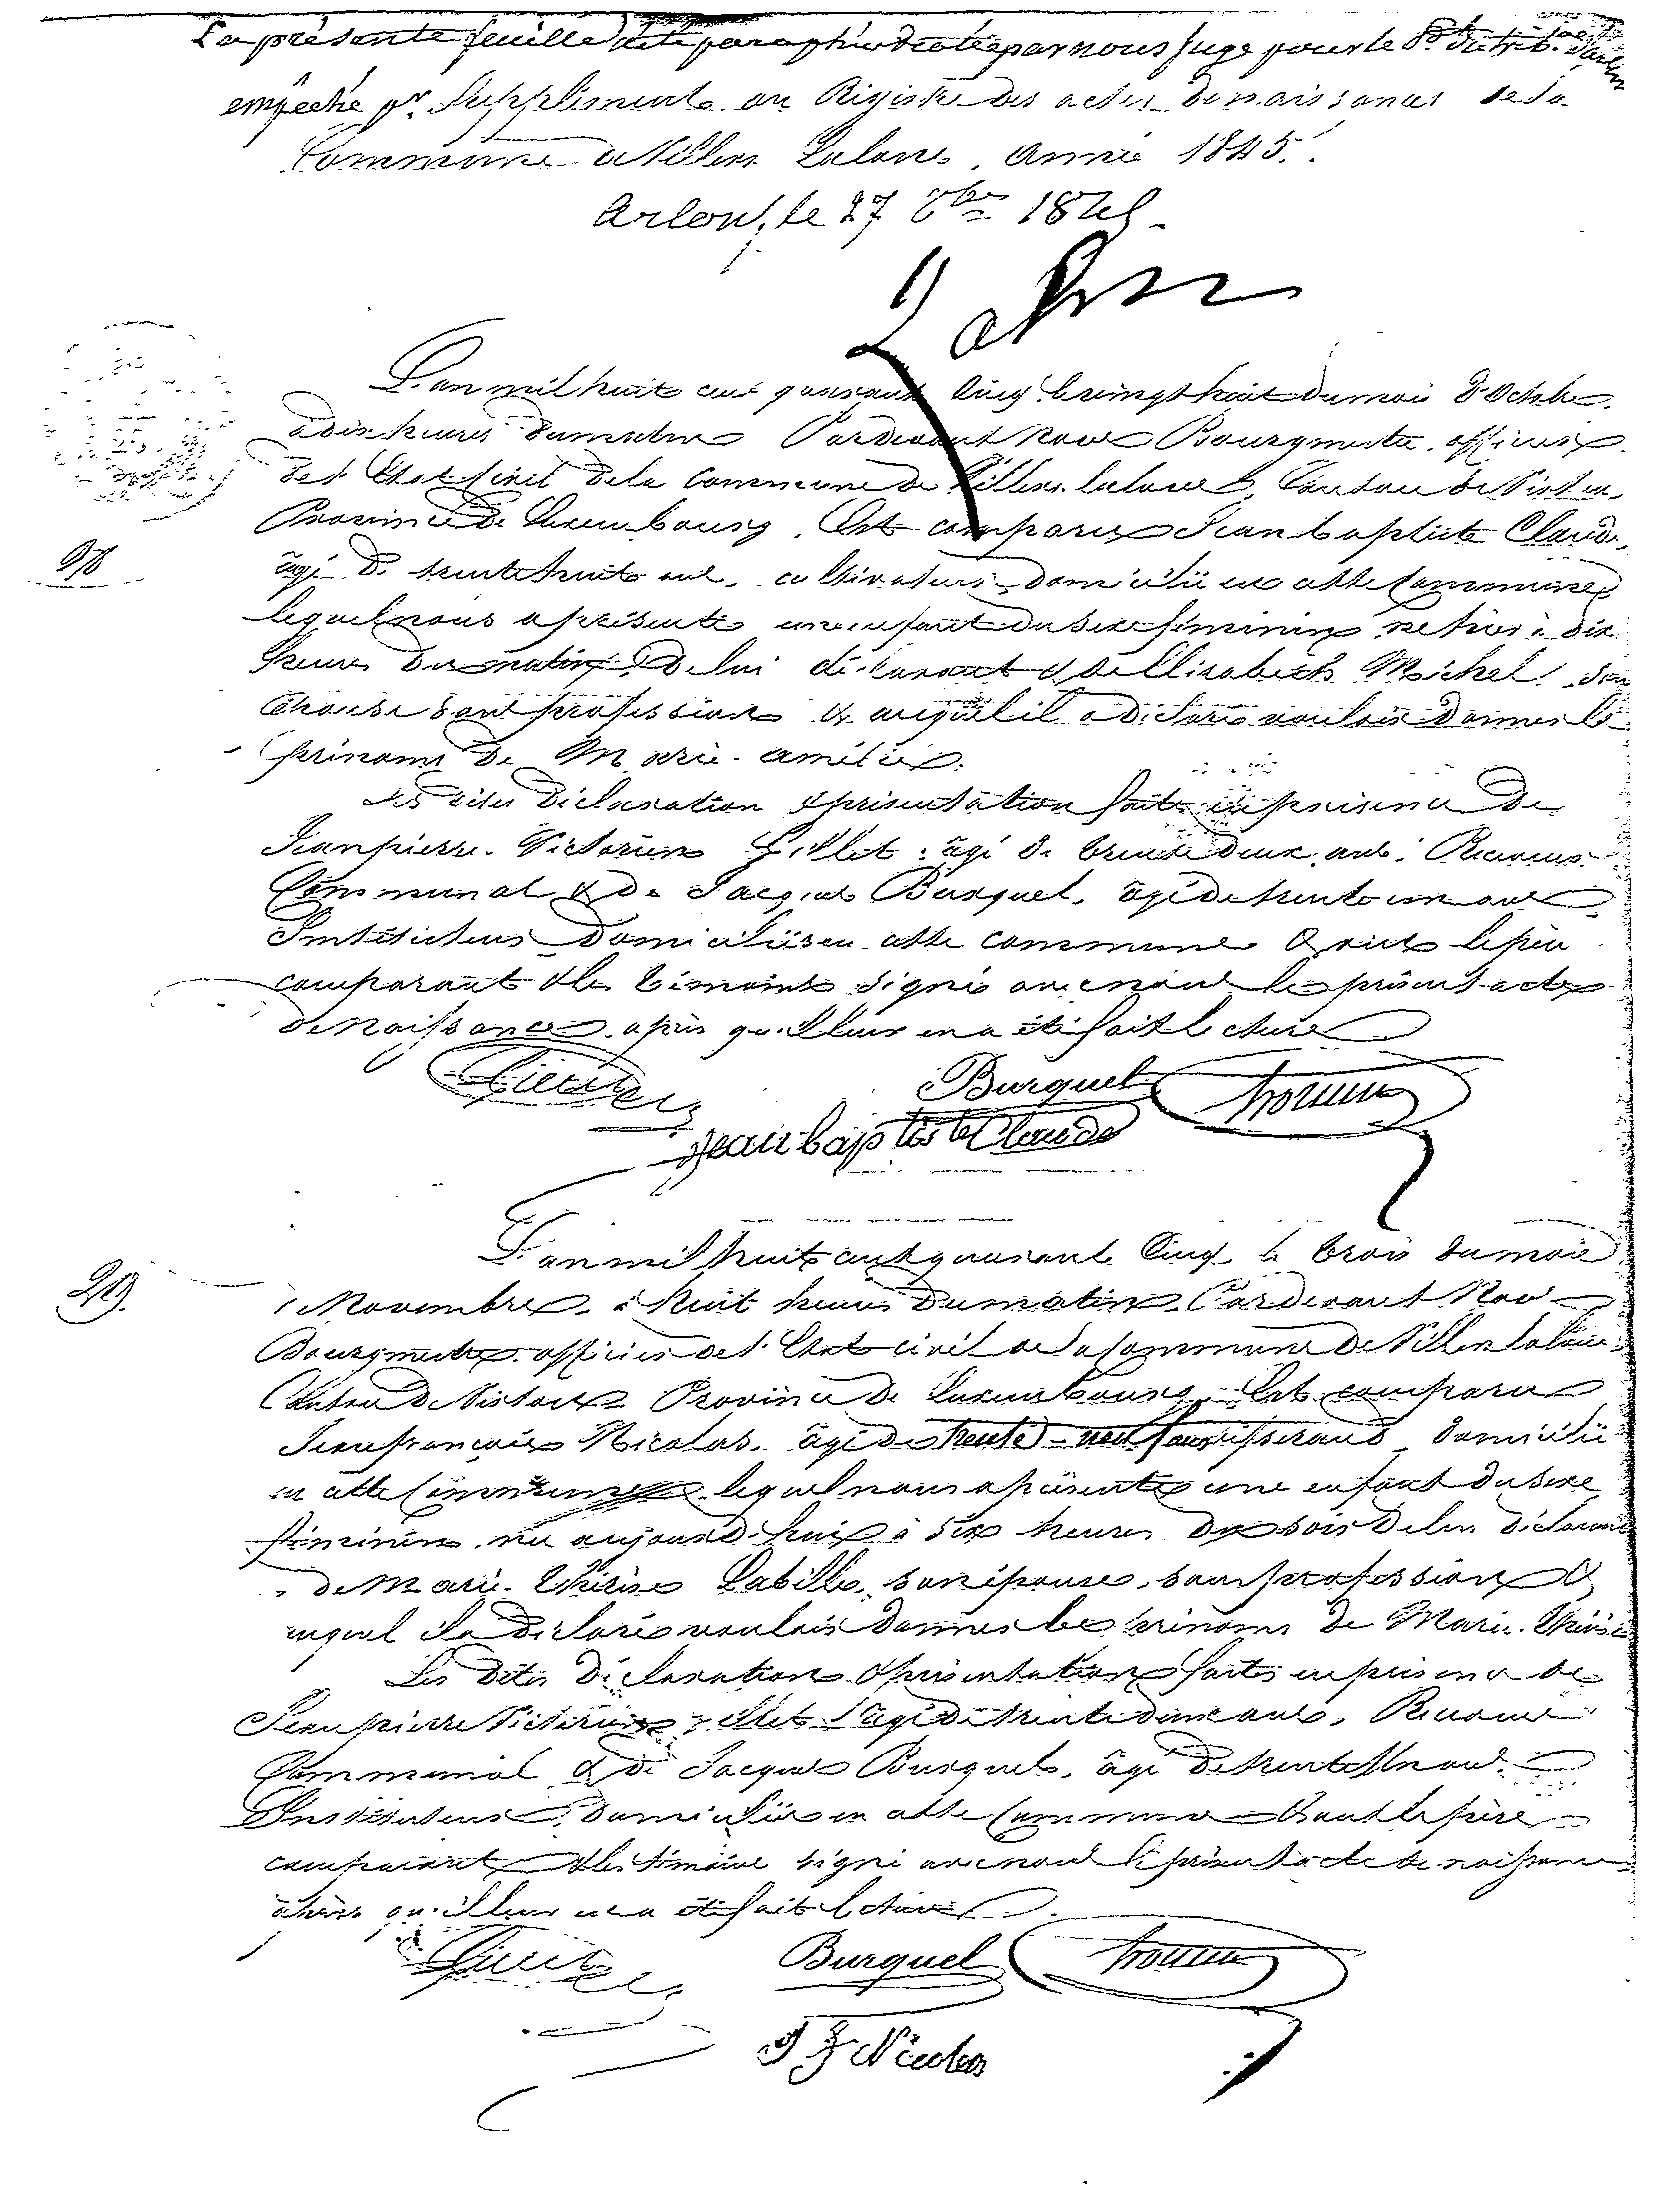 La présente feuille a été paraphée et cotée par nous juge pour le Pdt du trib. d'Arlon
empêché pr. Supplément au Registre des actes de naissances de la
Commune de Villers Laloue, année 1845.
Arlon, le 27 8bre 1845.
L'an mil huit cent quarante Cinq le vingt huit du mois d'Octobre
à dix heures du matin Pardevant Nous Bourgmestre, officier
de l'Etat Civil de la Commune de Villers laloue, Canton de Virton,
Province de Luxembourg. Est comparu Jean baptiste Claude
28
agé de trente huit ans, cultivateur domicilié en cette Commune
lequel nous a présenté une enfant du sexe féminin née hier à dix
heures du matin, de lui déclarant & de Elisabeth Michel, son
épouse sans profession & auquel il a déclaré vouloir donner les
prénoms de Marie amélie.
Les dites Déclaration & présentation faites en présence de
Jean pierre Victorien Gillet, agé de trente deux ans, Receveur
Communal & de Jacques Burquel, agé de trente un ans
Instituteur domiciliés en cette commune & ont le père
comparant & les témoins signé avec nous le présent acte
de Naissance, après qu'il leur en a été fait lecture
Burquel
Jean baptiste Claude
L'an mil huit cent quarante Cinq le trois du mois
29.
Novembre, à huit heures du matin, Pardevant Nous
Bourgmestre, officier de l'Etat civil de la Commune de Villers laloue
Canton de Virton Province de Luxembourg. Est comparu
Jean françois Nicolas, agé de trente-neuf ans, tisserand domicilié
en cette Commune lequel nous a présenté une enfant du sexe
féminin, née aujourd'hui à six heures du soir de lui déclarant
& de Marie Thérèse Labille, son épouse, sans profession &
auquel il a déclaré vouloir donner les prénoms de Marie Thérèse
Les dites Déclaration & présentation faites en présence de
Jean pierre Victorien Gillet agé de trente deux ans, Receveur
Communal & de Jacques Burquel, agé de trente Un ans
Instituteur, domiciliés en cette Commune & ont le père
comparant & les témoins signé avec nous le présent acte de naissance
après qu'il leur en a été fait lecture.
Burquel
J F Nicolas